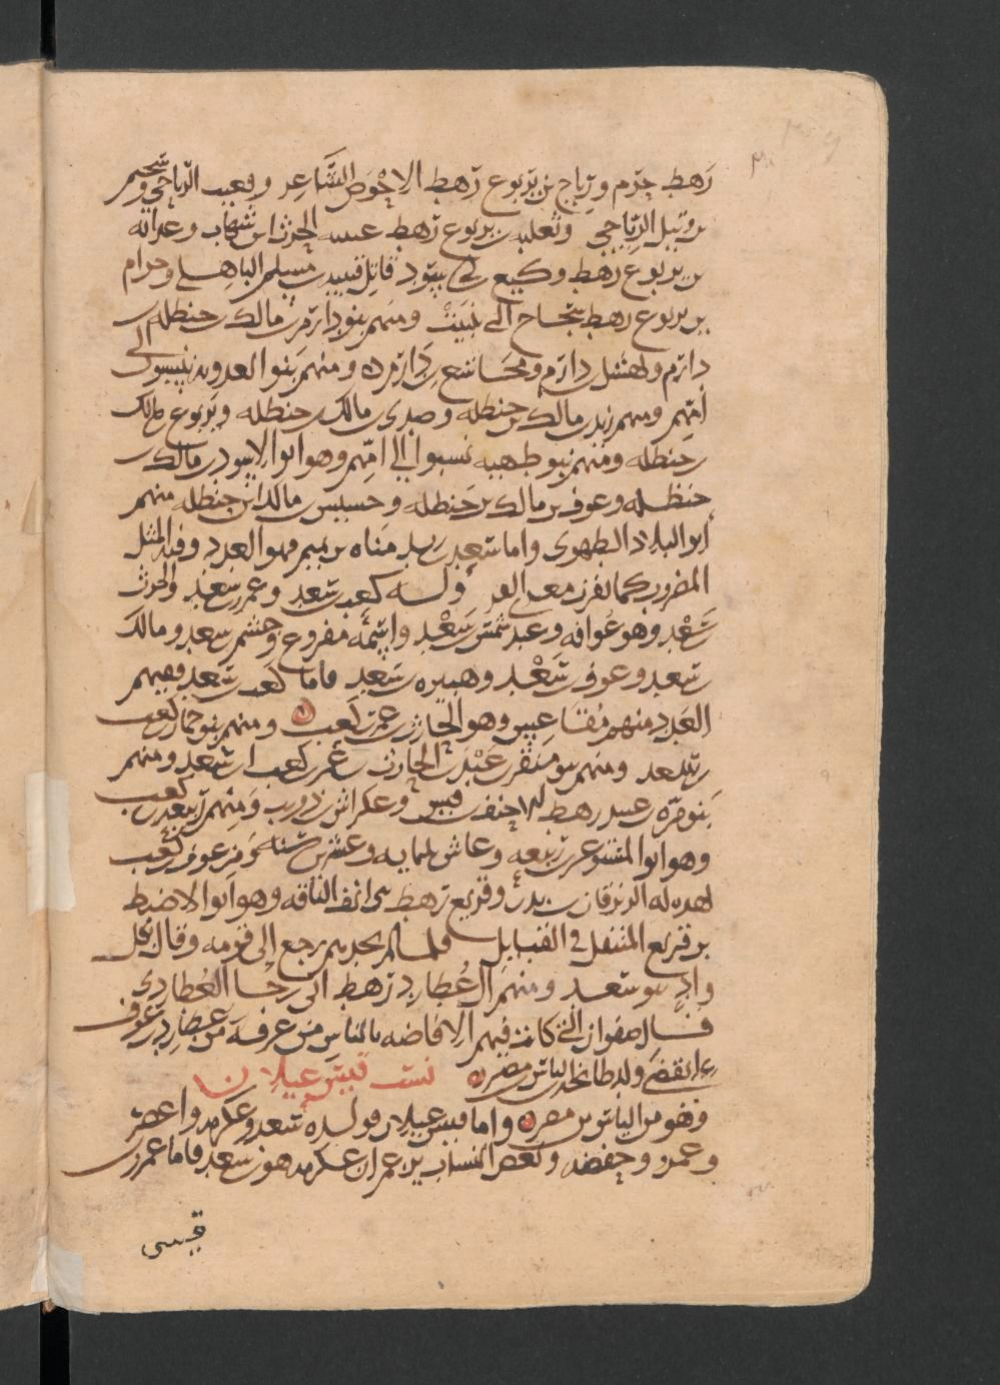 رَهط جرْم ورياح بن يَربوع رَهط الاحْوَص الشَّاعِر وقعنب الرّياحي وسُحيم
بن وثيل الرّياحي وثعلبه بن يربوع رَهط عتيبه الحرث ابن شهاب وغدانه
بن يربوع رَهط وكيع بن ابي سود قاتِل قتيبه بن مسلم الباهلي وحرام
بن يربوع رهط سجاح التي تنبَّتْ ومنهم بنو دارم بن مالك بن حنظله بن
دارم ونهشل بن دارم ومجَاشع بن دَارم ٥ ومنهم بنو العدويه ينسبون الى
أمّهم ومنهم زيد بن مالك بن حنظله وصدى بن مالك بن حنظله ويَربوع بن مالك
بن حنظله ومنهم بنو طهيه نسبوا الى امّهم وهو ابو الاسود بن مالك بن
حنظله وعوف بن مالك بن حَنظله وحسيس بن مالك ابن حنظله منهم
ابو البلاد الطهوى واما سَعد بن زيد مَناه بن تميم فهو العدد وفيه المثل
المضروب كما تفرق معزى الفزر وولده كعب بن سَعد وعمر بن سَعد والحرث بن
سَعْد وهو عُوافه وعبد شمس بن سَعْد واسْمه مفروع وجشم بن سعد ومالك بن
سَعد وعوف بن سَعْد وهبيره بن سَعد فاما كعب بن سعد ففيهم
العَدد منهم مُقاعِس وهو الحارث بن عمر بن كعب ٥ ومنهم بنو حمان بن كعب
بن سعد ومنهم بنو منقر بن عبيد بن الحارث بن عمر بن كعب ابن سَعد ومنهم
بَنو مرّه بن عبيد رهط الاحنف بن قيس وعكراش بن ذويب ومنهم ربيعه بن كعب
وهو ابو المستوعر بن ربيعه وعاش ثلثمايه وعشرين سَنه ومن عوف بن كعب
بهدله الزبرقان بن بدر وقريع رَهط بني انف الناقه وهو ابو الاضبط
بن قريع المنتقل في القبايل فلما لم يحمدهم رجع إلى قومه وقال بكل
وادٍ بنو سَعد ومنهم آل عُطارِد رَهط ابى رَجا العُطاردى
قال صفوان التي كانت فيهم الافاضه بالناس من عرفة من عطارِد بن عوف
انقضى ولد طابخه بن الياس بن مضر ٥ نسب قيس عيلان
وهو من الياس بن مضر ٥ واما قيس عيلان فولده سَعد وعكرمه واعصر
وعمرو وحفصه وبعض النساب يزعم ان عكرمه هو بن سعد فاما عمر بن
قيس